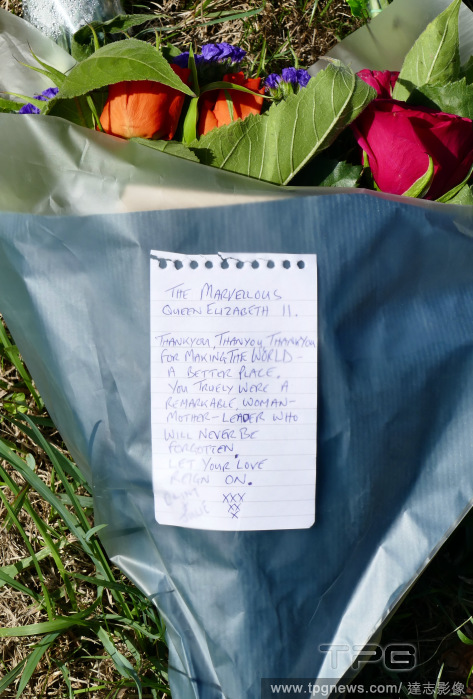 THE MARVELLOUS
QUEEN ELIZABETH II.
THANKYOU, THANYOU, THANKYOU
FOR MAKING THE WORLD -
A BETTER PLACE.
YOU TRUELY WERE A
REMARKABLE, WOMAN-
MOTHER - LEADER WHO
WILL NEVER BE
FORGOTTEN.
LET YOUR LOVE
REIGN ON.
XXX
X
X
TPG
www.tpgnews.com/達志影像